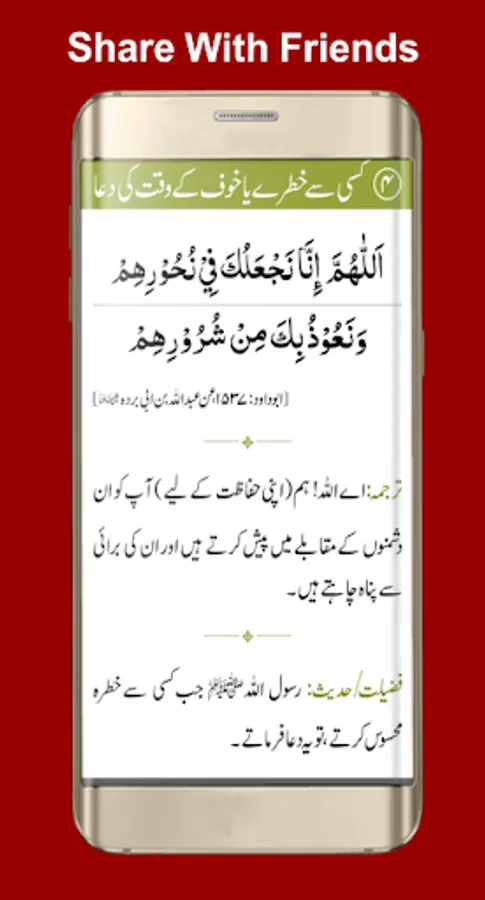 Share With Friends
۴ کسی سے خطرے یا خوف کے وقت کی دعا
اَللّٰهُمَّ إِنَّا نَجْعَلُكَ فِيْ نُحُوْرِهِمْ
وَنَعُوْذُبِكَ مِنْ شُرُوْرِهِمْ
[ابوداود: ۱۵۳۷، عن عبداللہ بن ابی بردہ]
ترجمہ: اے اللہ! ہم (اپنی حفاظت کے لیے) آپ کو ان
دشمنوں کے مقابلے میں پیش کرتے ہیں اور ان کی برائی
سے پناہ چاہتے ہیں۔
فضیلت/حدیث: رسول اللہ ﷺ جب کسی سے خطرہ
محسوس کرتے، تو یہ دعا فرماتے۔